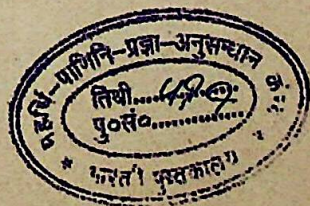 महर्षि-पाणिनि-प्रज्ञा-अनुसन्धान
तिथी
पु०सं०
* भारती पुस्तकालय *